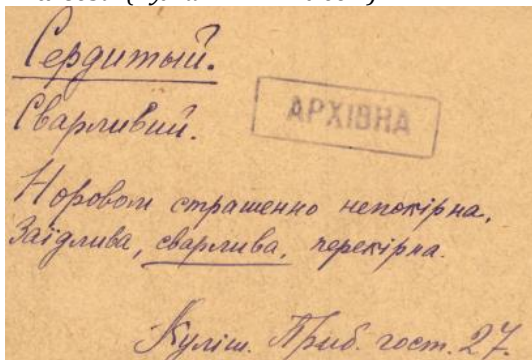 Сердитый.
Сварливий.
АРХІВНА
Норовом страшенно непокірна,
Заїдлива, сварлива, перекірна.
Куліш. Приб. гост. 27.